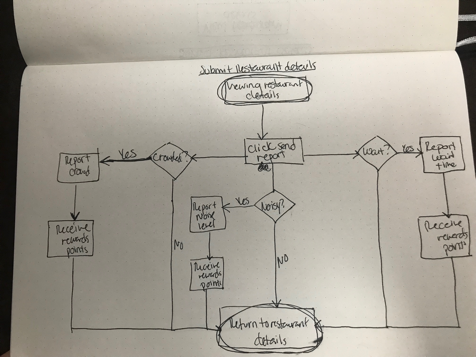 Submit Restaurant details
Viewing restaurant
details
Click send
report
Crowded?
Yes
Report
crowd
Receive
rewards
points
NO
Wait?
Yes
Report
wait
time
Receive
rewards
points
Noisy?
Yes
Report
Noise
level
Receive
rewards
points
NO
Return to restaurant
details